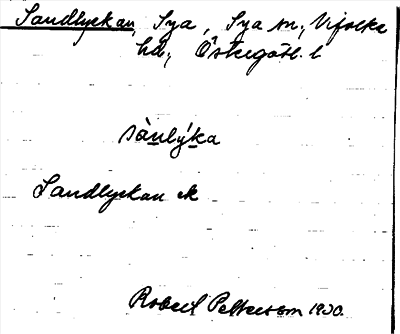 Sandlyckan, Sya, Sya sn, Vifolka
hd, Östergötl. l
sànlýka
Sandlyckan ek
Robert Pettersson 1930.